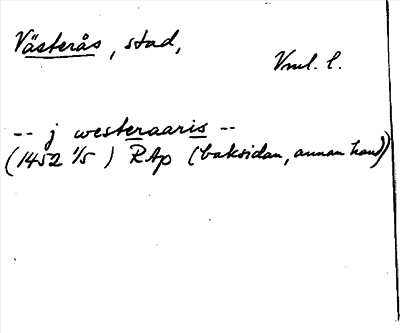 Västerås, stad,
Vml. l.
-- j westeraaris --
(1452 1/5) RAp (baksidan, annan hand)